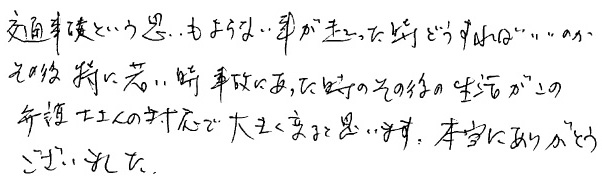 交通事故という思いもよらない事が起こった時どうすればいいのか
その後 特に若い時 事故にあった時のその後の生活がこの
弁護士さんの対応で大きく変ると思います。本当にありがとう
ございました。